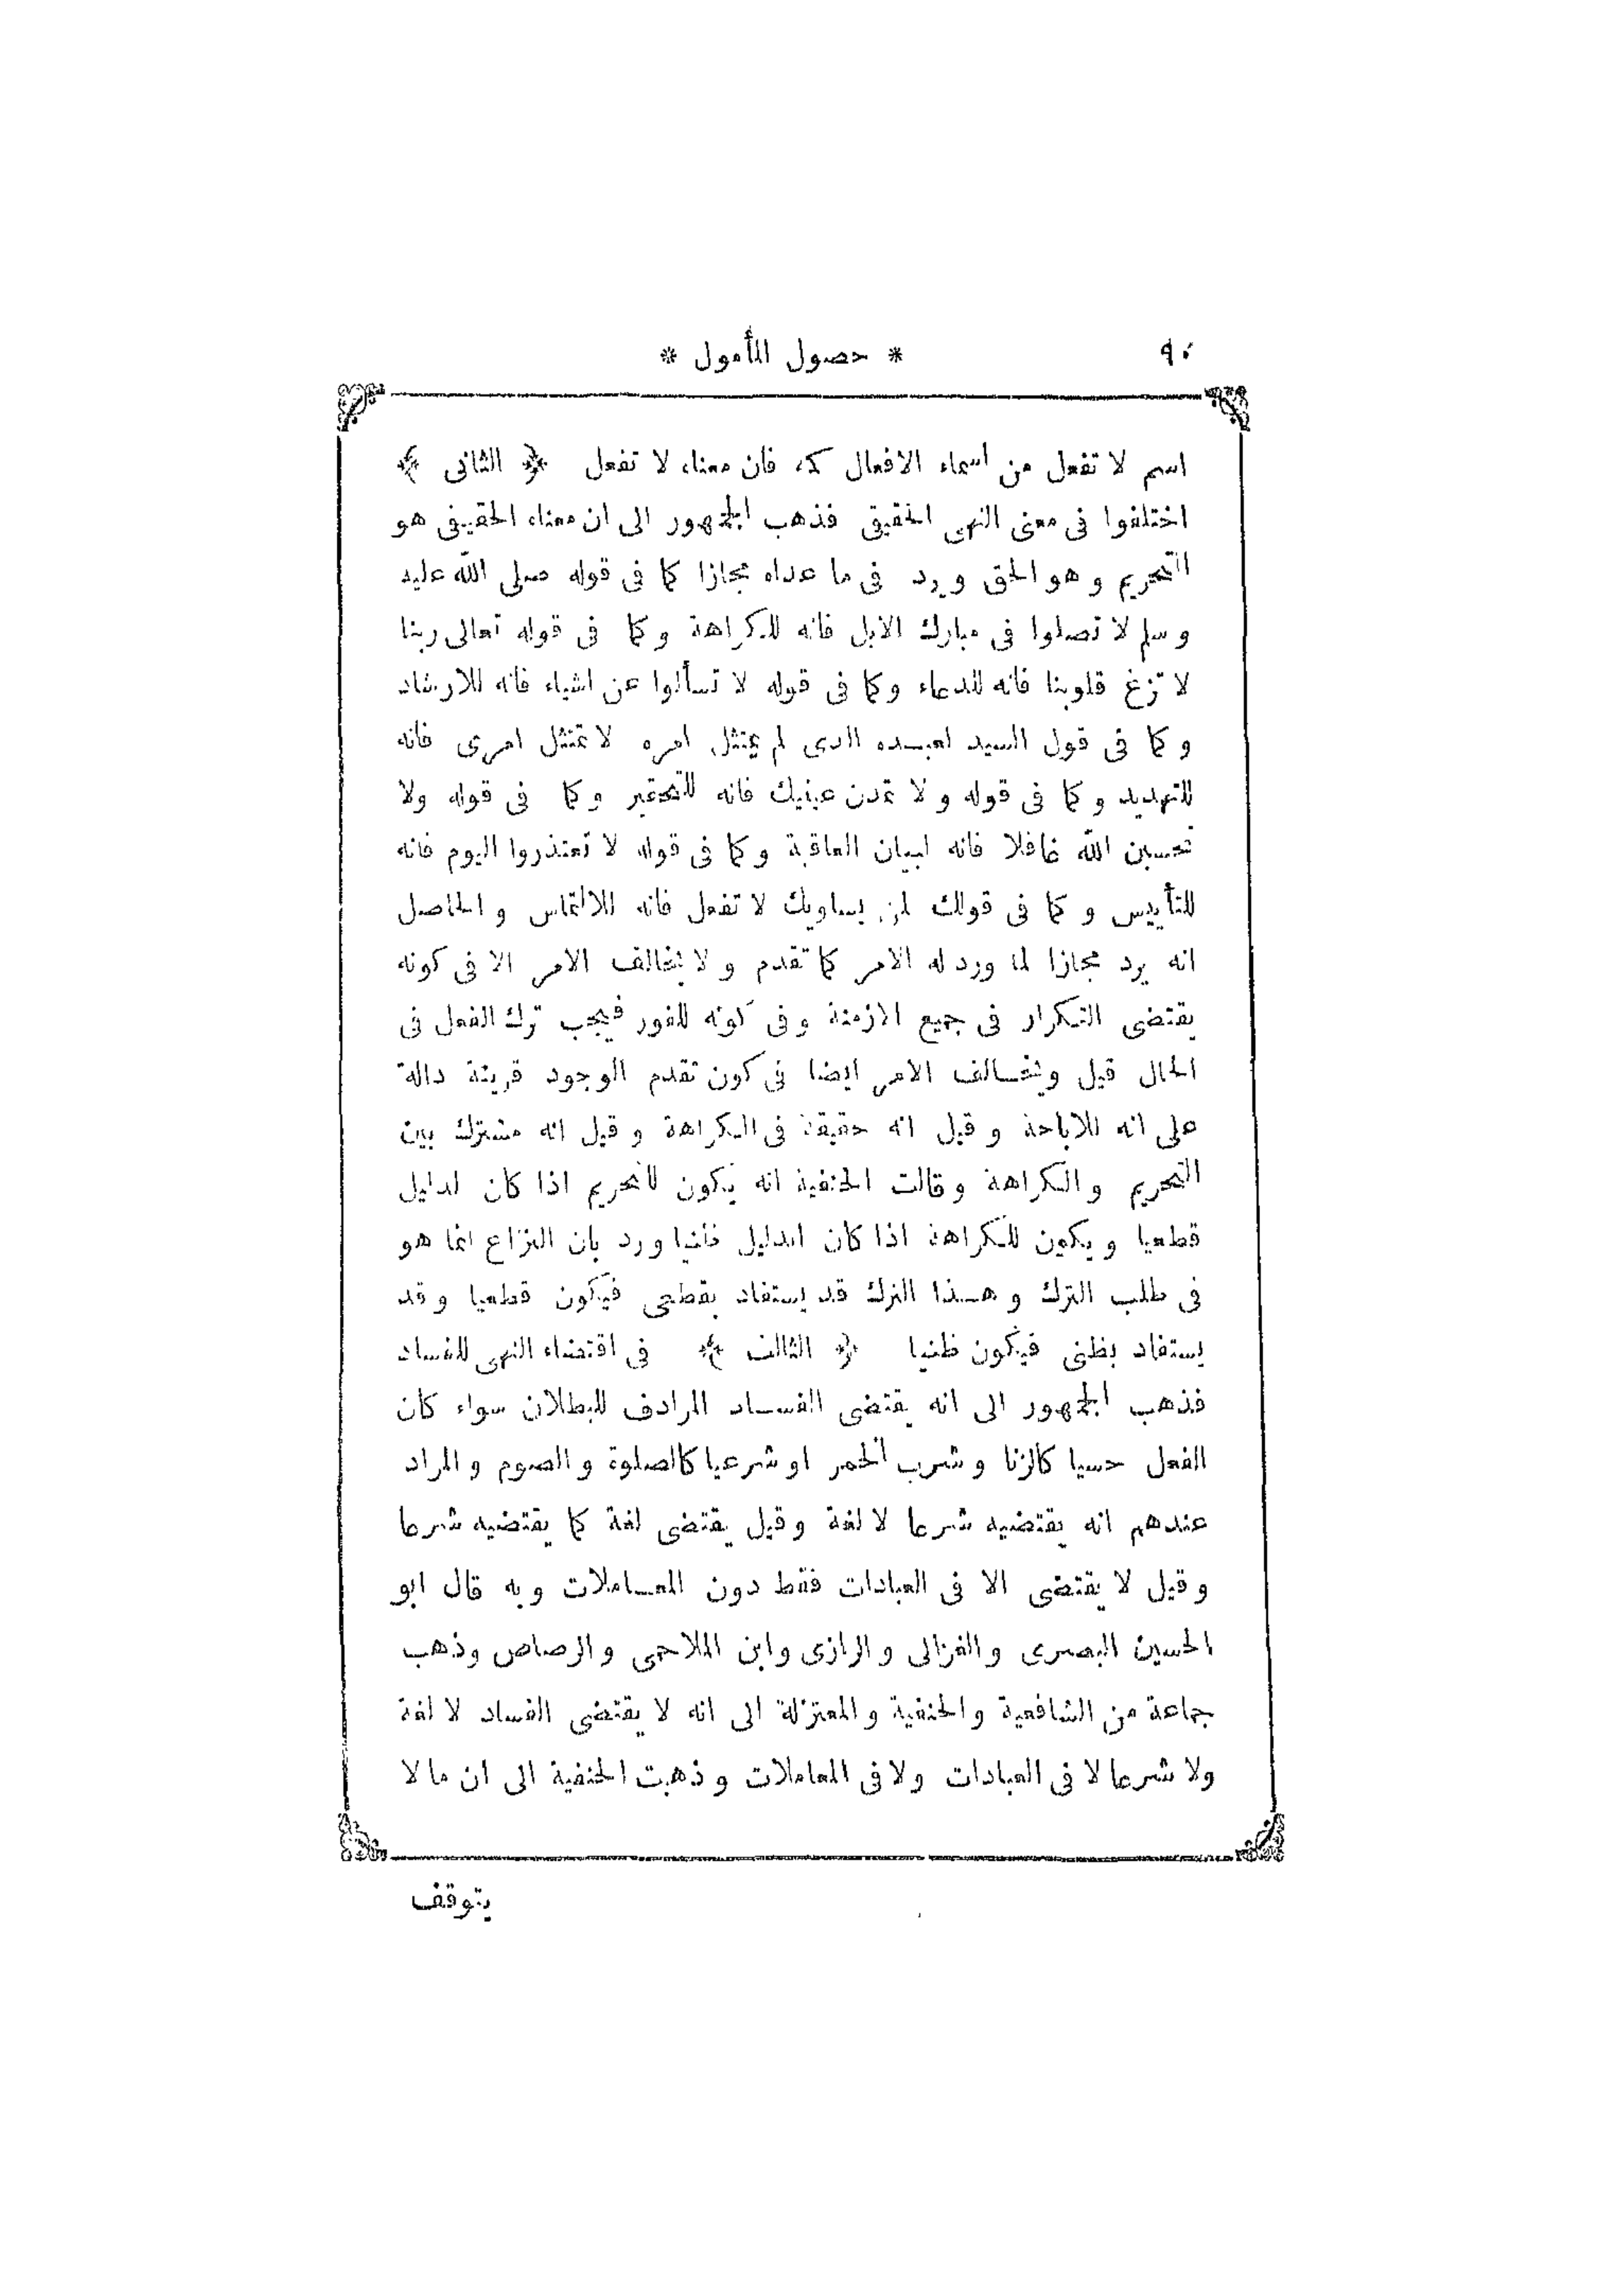 ٩٠ * حصول المأمول *
اسم لا تفعل من اسماء الافعال كمه فان معناه لا تفعل ﴿ الثانى ﴾
اختلفوا فى معنى النهى الحقيقى فذهب الجمهور الى ان معناه الحقيقى هو
التحريم وهو الحق ويرد فى ما عداه مجازا كما فى قوله صلى الله عليه
وسلم لا تصلوا فى مبارك الابل فانه للكراهة وكما فى قوله تعالى ربنا
لا تزغ قلوبنا فانه للدعاء وكما فى قوله لا تسألوا عن اشياء فانه للارشاد
وكما فى قول السيد لعبده الذى لم يمتثل امره لا تمتثل امرى فانه
للتهديد وكما فى قوله ولا تمدن عينيك فانه للتحقير وكما فى قوله ولا
تحسبن الله غافلا فانه لبيان العاقبة وكما فى قوله لا تعتذروا اليوم فانه
للتأييس وكما فى قولك لمن يساويك لا تفعل فانه للالتماس والحاصل
انه يرد مجازا لما ورد له الامر كما تقدم ولا يخالف الامر الا فى كونه
يقتضى التكرار فى جميع الازمنة وفى كونه للفور فيجب ترك الفعل فى
الحال قيل ويخالف الامر ايضا فى كون تقدم الوجود قرينة دالة
على انه للاباحة وقيل انه حقيقة فى الكراهة وقيل انه مشترك بين
التحريم والكراهة وقالت الحنفية انه يكون للتحريم اذا كان لدليل
قطعيا ويكون للكراهة اذا كان الدليل ظنيا ورد بان النزاع انما هو
فى طلب الترك وهذا الترك قد يستفاد بقطعى فيكون قطعيا وقد
يستفاد بظنى فيكون ظنيا ﴿ الثالث ﴾ فى اقتضاء النهى للفساد
فذهب الجمهور الى انه يقتضى الفساد المرادف للبطلان سواء كان
الفعل حسيا كالزنا وشرب الخمر او شرعيا كالصلوة والصوم والمراد
عندهم انه يقتضيه شرعا لا لغة وقيل يقتضى لغة كما يقتضيه شرعا
وقيل لا يقتضى الا فى العبادات فقط دون المعاملات وبه قال ابو
الحسين البصرى والغزالى والرازى وابن الملاحمى والرصاص وذهب
جماعة من الشافعية والحنفية والمعتزلة الى انه لا يقتضى الفساد لا لغة
ولا شرعا لا فى العبادات ولا فى المعاملات وذهبت الحنفية الى ان ما لا
يتوقف